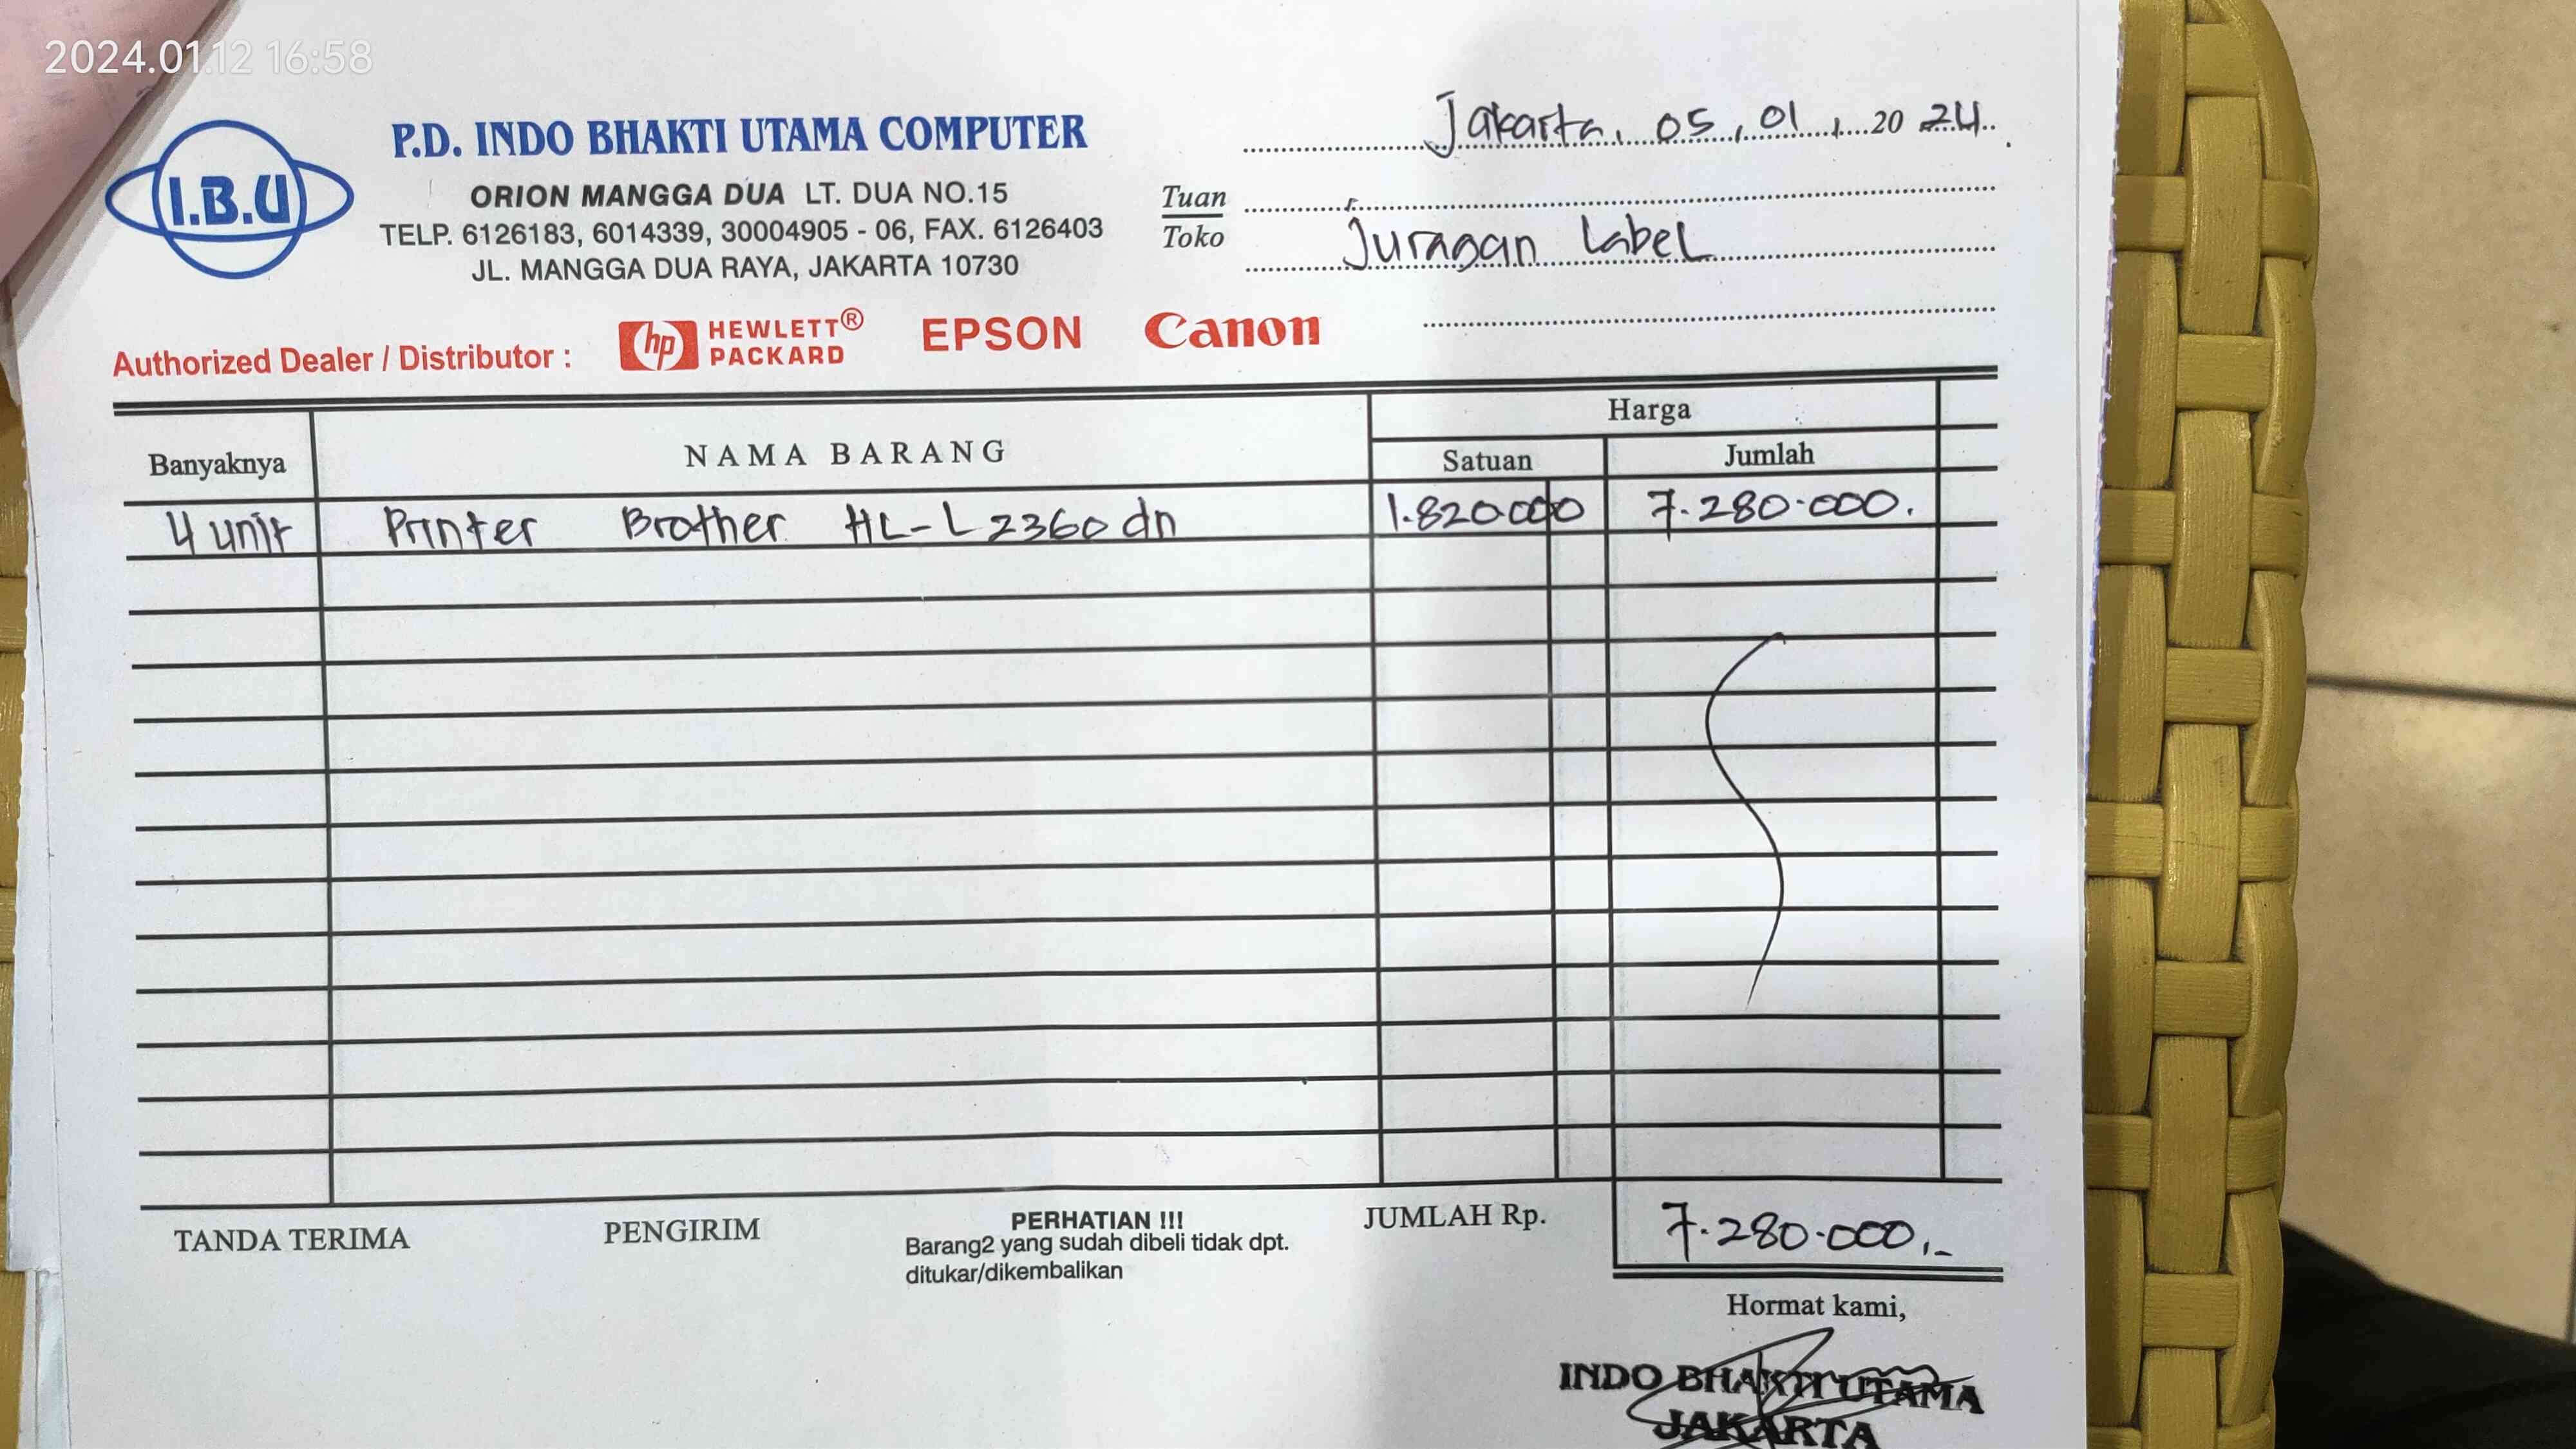 2024.01.12 16:58
P.D. INDO BHAKTI UTAMA COMPUTER
I.B.U
ORION MANGGA DUA LT. DUA NO.15
TELP. 6126183, 6014339, 30004905 - 06, FAX. 6126403
JL. MANGGA DUA RAYA, JAKARTA 10730
Jakarta, 05, 01, 20 24
Tuan
Toko
Juragan Label
Authorized Dealer / Distributor :
hp HEWLETT® PACKARD
EPSON
Canon
Banyaknya NAMA BARANG Harga
Satuan Jumlah
4 unit Printer Brother HL-L2360dn 1.820.000 7.280.000.
TANDA TERIMA
PENGIRIM
PERHATIAN !!!
Barang2 yang sudah dibeli tidak dpt.
ditukar/dikembalikan
JUMLAH Rp. 7.280.000,-
Hormat kami,
INDO BHAKTI UTAMA
JAKARTA